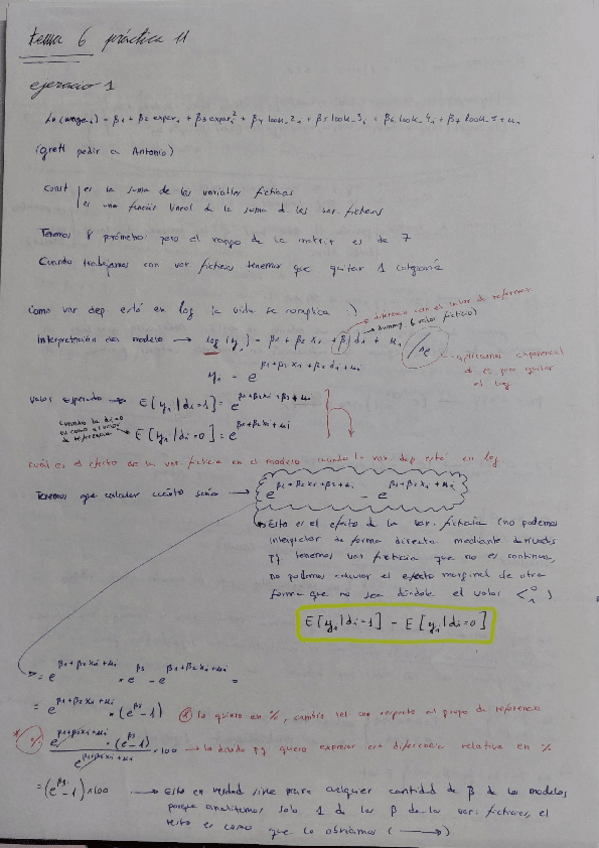 tema 6 práctica 11
ejercicio 1
Ln(wage_i) = β1 + β2 exper_i + β3 exper_i² + β4 look_2_i + β5 look_3_i + β6 look_4_i + β7 look_5 + u_i
(gretl pedir a Antonio)
const | es la suma de las variables ficticias
es una función lineal de la suma de las var. ficticias
Tenemos 8 parámetros pero el rango de la matriz es de 7
Cuando trabajamos con var ficticias tenemos que quitar 1 categoría
Como var dep. está en log la vida se complica :)
diferencia con el valor de referencia
dummy (valor ficticio)
Interpretación del modelo → log(y_i) = β1 + β2 x_i + β3 di + u_i
y_i = e^{β1+β2x_i+β3di+ui}
aplicamos exponencial
para quitar
el log
valor esperado → E[y_i|di=1] = e^{β1+β2xi+β3+ui}
cuando la di=0
es como el valor
de referencia
→ E[y_i|di=0] = e^{β1+β2xi+ui}
cuál es el efecto de la var. ficticia en el modelo cuando la var. dep está en log
Tenemos que calcular cuánto sería → e^{β1+β2xi+β3+ui} - e^{β1+β2xi+ui}
Esto es el efecto de la var. ficticia (no podemos
interpretar de forma directa mediante derivadas
pq tenemos var ficticia que no es continua,
no podemos calcular el efecto marginal de otra
forma que no sea dándole el valor < 0 1 )
E[y_i|di=1] - E[y_i|di=0]
= e^{β1+β2xi+ui} · e^{β3} - e^{β1+β2xi+ui} =
= e^{β1+β2xi+ui} · (e^{β3} - 1) * lo quiero en %, cambio rel con respecto al grupo de referencia
* % e^{β1+β2xi+ui} · (e^{β3} - 1) / e^{β1+β2xi+ui} × 100 → lo divido pq quiero expresar esa diferencia relativa en %
= (e^{β3} - 1) × 100 → Esto en verdad sirve para cualquier cantidad de β de los modelos
porque analizamos solo 1 de los β de las var. ficticias, el
resto es como que lo obviamos ( → )